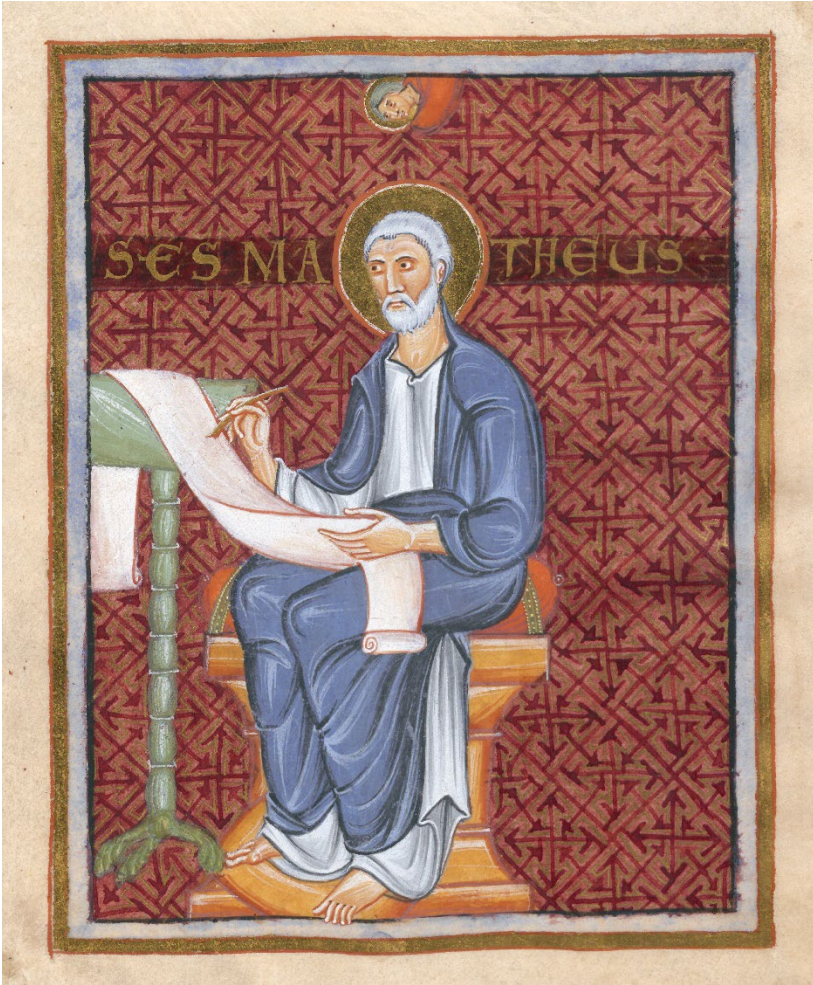 SCS MATHEUS